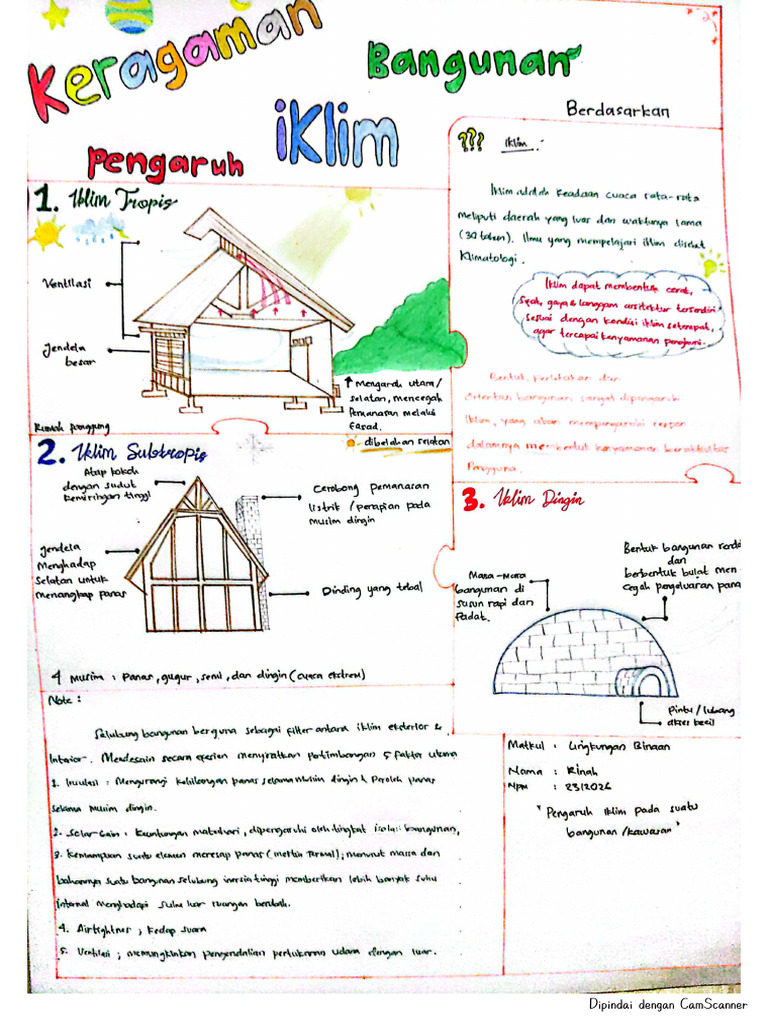 Keragaman
Bangunan
Berdasarkan
Pengaruh
iKlim
1. Iklim Tropis
Ventilasi
Jendela
besar
Rumah panggung
↑ Mengarah utara/
selatan, mencegah
Pemanasan melalui
Fasad.
??? Iklim :
Iklim adalah keadaan cuaca rata-rata
meliputi daerah yang luas dan waktunya lama
(30 tahun). Ilmu yang mempelajari iklim disebut
Klimatologi.
Iklim dapat membentuk corak,
Sifat, gaya & langgam arsitektur tersendiri
sesuai dengan kondisi iklim setempat,
agar tercapai kenyamanan penghuni.
Bentuk, perletakan dan
orientasi bangunan sangat dipengaruhi
Iklim, yang akan mempengaruhi respon
dalamnya membentuk kenyamanan beraktivitas
Pengguna.
2. Iklim Subtropis
dibelahan selatan
Atap kokoh
dengan sudut
kemiringan tinggi
Cerobong pemanasan
listrik / perapian pada
musim dingin
Jendela
Menghadap
Selatan untuk
menangkap panas
Dinding yang tebal
4 musim : Panas, gugur, semi, dan dingin (cuaca ekstrem)
3. Iklim Dingin
Bentuk bangunan renda
dan
berbentuk bulat men
cegah pengeluaran pana
bangunan di
susun rapi dan
Padat.
Pintu / lubang
akses kecil
Note :
Selubung bangunan berguna sebagai filter antara iklim eksterior &
Interior. Mendesain secara efisien menyiratkan pertimbangan 5 faktor utama
1. Insulasi : Mengurangi kehilangan panas selama musim dingin & Peroleh panas
selama musim dingin.
2. Solar Gain : keuntungan matahari, dipengaruhi oleh tingkat isolasi bangunan,
3. Kemampuan suatu elemen meresap panas ( Termal); menurut massa dan
bahannya suatu bangunan selubung inersia tinggi memberikan lebih banyak suhu
internal menghadapi suhu luar ruangan berubah.
4. Airtightner ; Kedap suara
5. Ventilasi ; memungkinkan pengendalian pertukaran udara dengan luar.
Matkul : Lingkungan Binaan
Nama : Rinah
Npm : 2312026
" Pengaruh Iklim pada suatu
bangunan /kawasan "
Dipindai dengan CamScanner